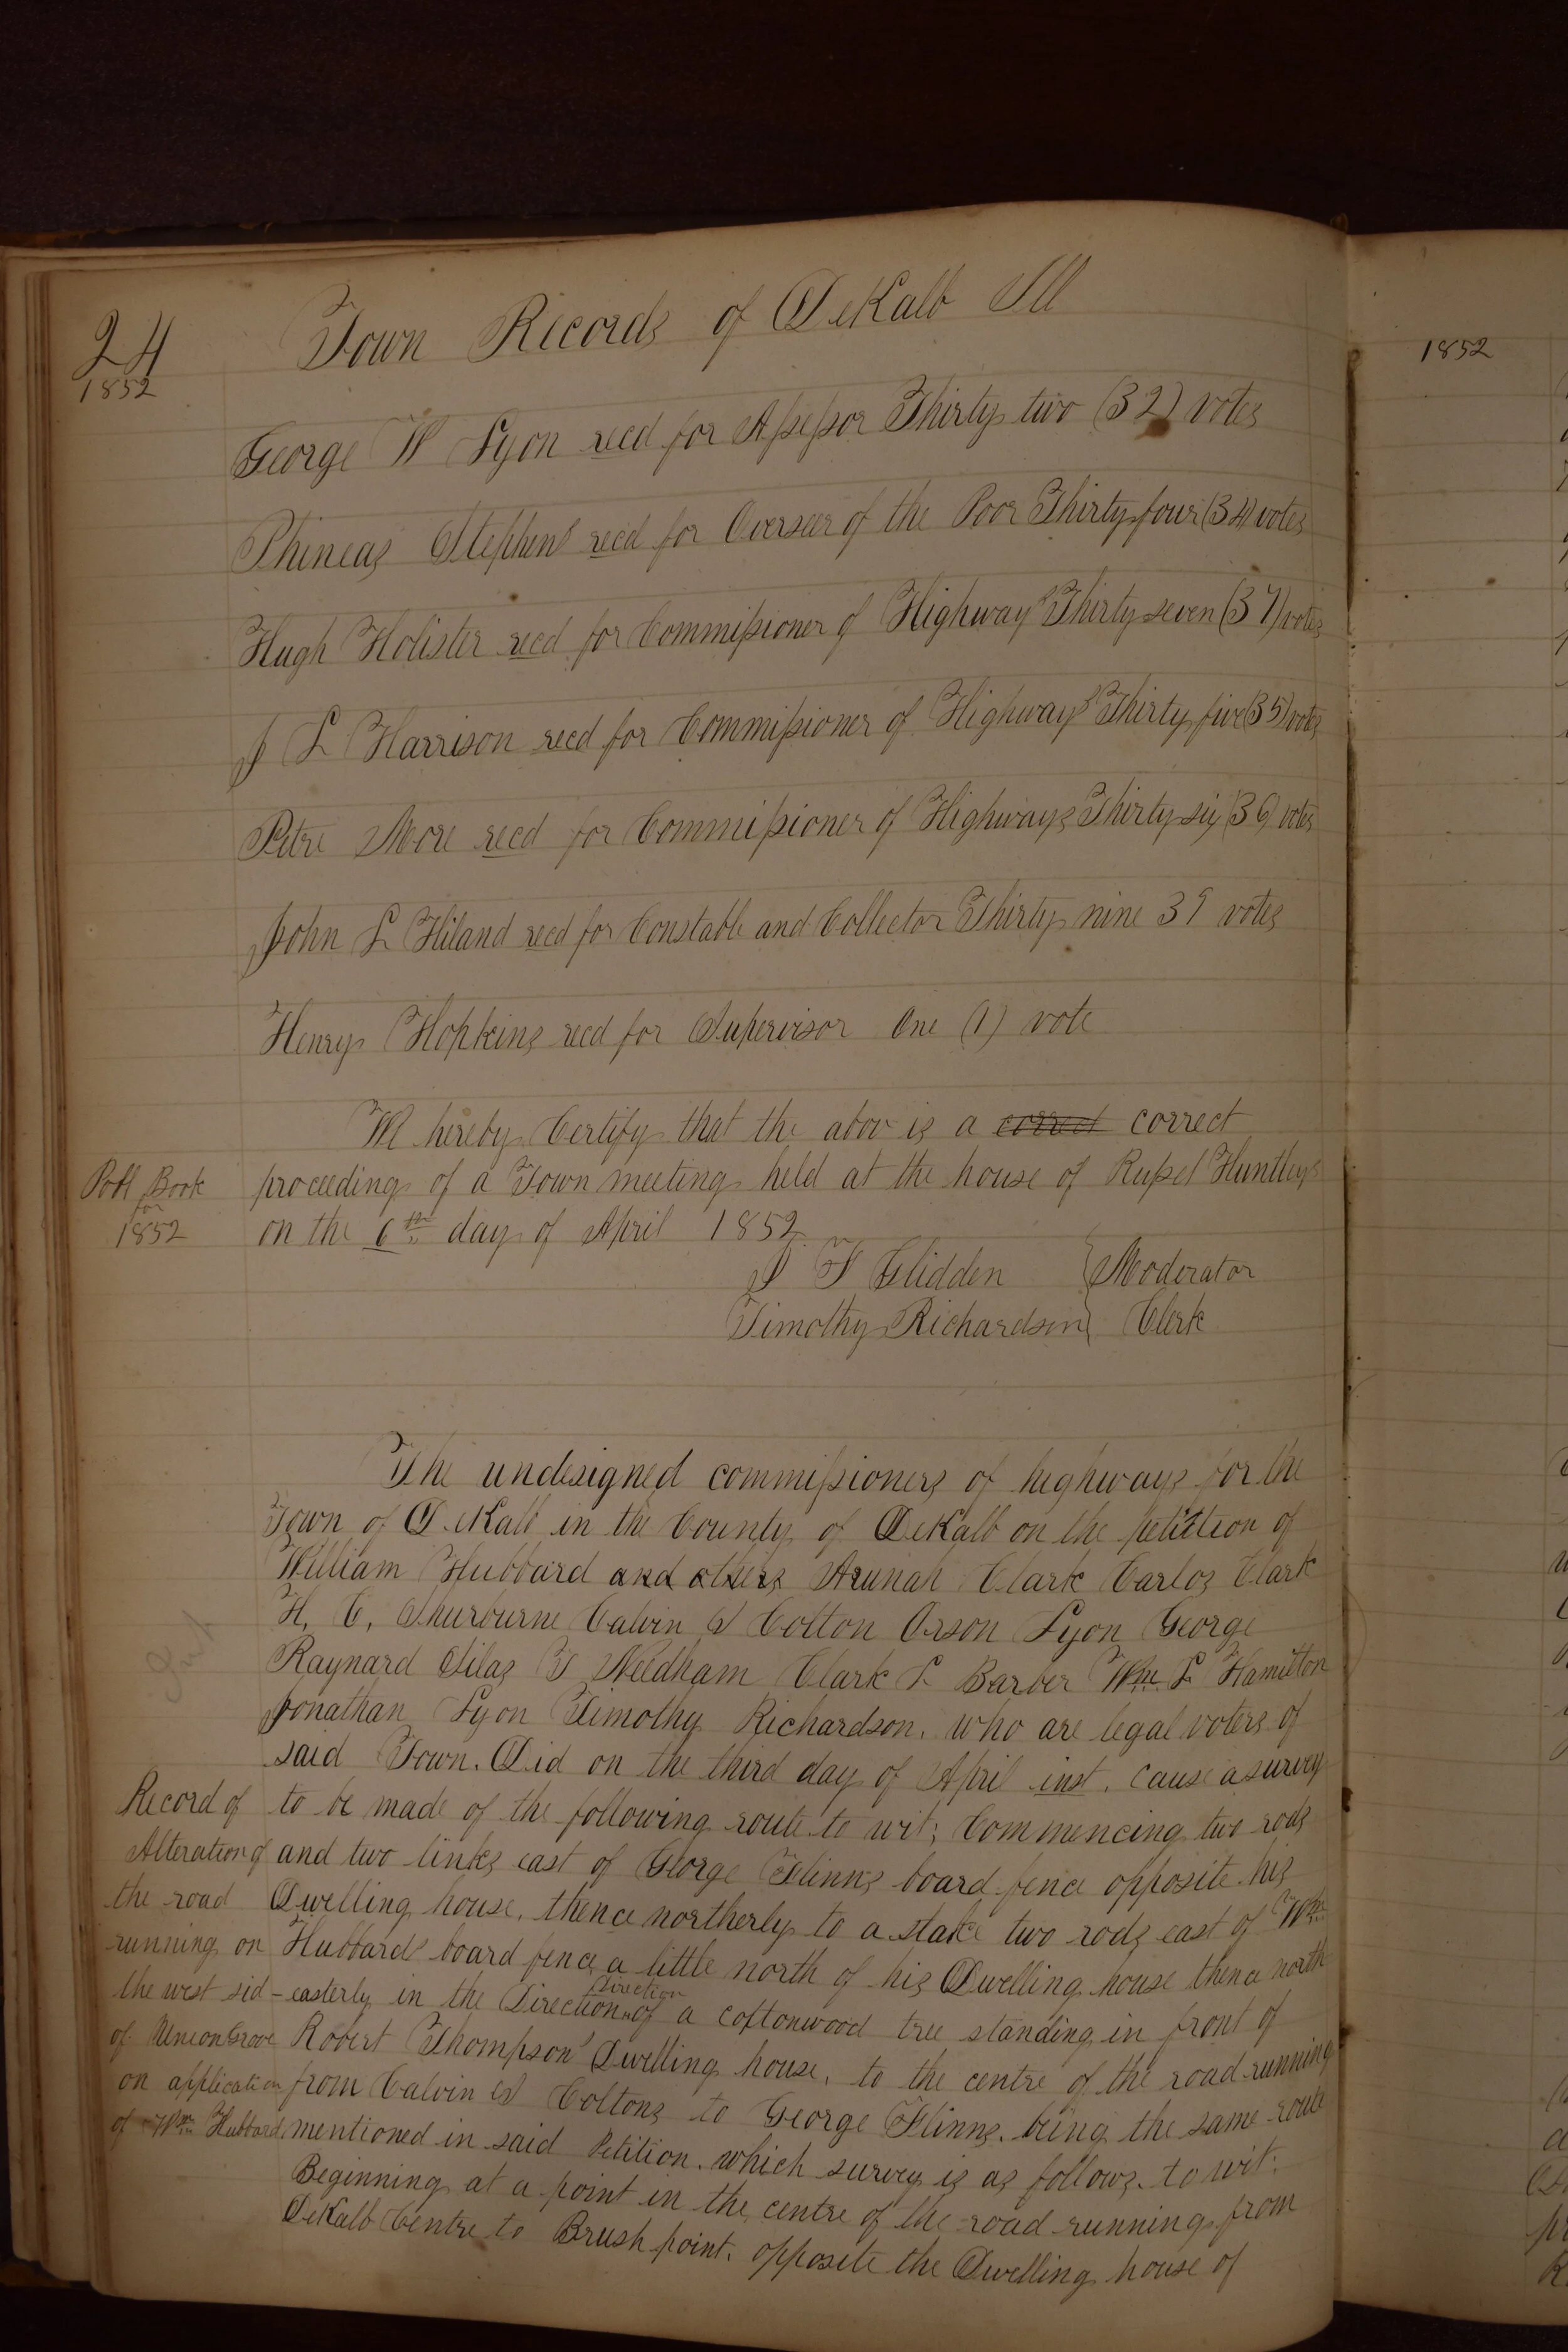 24
1852
Town Records of DeKalb Ill
George W Lyon recd for Assessor Thirty two (32) votes
Phineas Stephens recd for Overseer of the Poor Thirty four (34) votes
Hugh Holister recd for Commissioner of Highways Thirty seven (37) votes
J L Harrison recd for Commissioner of Highways Thirty five (35) votes
Petre More recd for Commissioner of Highways Thirty six (36) votes
John L Hiland recd for Constable and Collector Thirty nine 39 votes
Henry Hopkins recd for Supervisor One (1) vote
We hereby Certify that the abov is a correct correct
proceeding of a Town meeting held at the house of Russel Huntleys
on the 6th day of April 1852
Poll Book
for
1852
J F Glidden } Moderator
Timothy Richardson } Clerk
The undesigned commissioners of highways for the
Town of DeKalb in the County of DeKalb on the petittion of
William Hubbard and others Arunah Clark Carlos Clark
H. C. Shurburne Calvin S Colton Orson Lyon George
Raynard Silas T Needham Clark L Barber Wm L Hamilton
Jonathan Lyon Timothy Richardson. who are legal voters of
said Town. Did on the third day of April inst. cause a survey
to be made of the following route to wit; Commencing two rods
and two links east of George Flinns board fence opposite his
Dwelling house. thence northerly to a stake two rods east of Wm
Hubbards board fence a little north of his Dwelling house thence north
-easterly in the Direction Direction of a cottonwood tree standing in front of
Robert Thompsons Dwelling house. to the centre of the road running
from Calvin S Coltons to George Flinns. being the same route
mentioned in said Petition. which survey is as follows. to wit:
Beginning at a point in the centre of the road running from
DeKalb Centre to Brush point. opposite the Dwelling house of
Record of
Alteration of
the road
running on
the west sid
of Union Grove
on application
of Wm Hubbard
1852